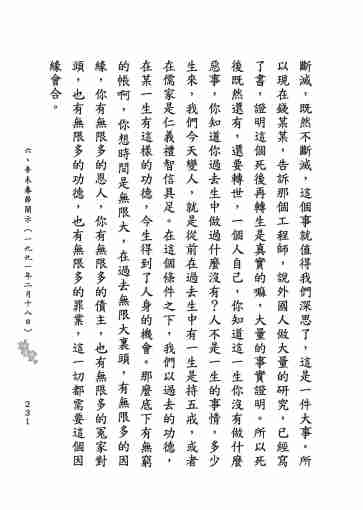 斷滅，既然不斷滅，這個事就值得我們深思了，這是一件大事。所
以現在錢某某，告訴那個工程師，說外國人做大量的研究，已經寫
了書，證明這個死後再轉生是真實的嘛，大量的事實證明。所以死
後既然還有，還要轉世，一個人自己，你知道這一生你沒有做什麼
惡事，你知道你過去生中做過什麼沒有？人不是一生的事情，多少
生來，我們今天變人，就是從前在過去生中有一生是持五戒，或者
在儒家是仁義禮智信具足。在這個條件之下，我們以過去的功德，
在某一生有這樣的功德，今生得到了人身的機會。那麼底下有無窮
的帳啊，你想時間是無限大，在過去無限大裏頭，有無限多的因
緣，你有無限多的恩人，你有無限多的債主，也有無限多的冤家對
頭，也有無限多的功德，也有無限多的罪業，這一切都需要這個因
緣會合。
六、辛未春節開示（一九九一年二月十八日）
231